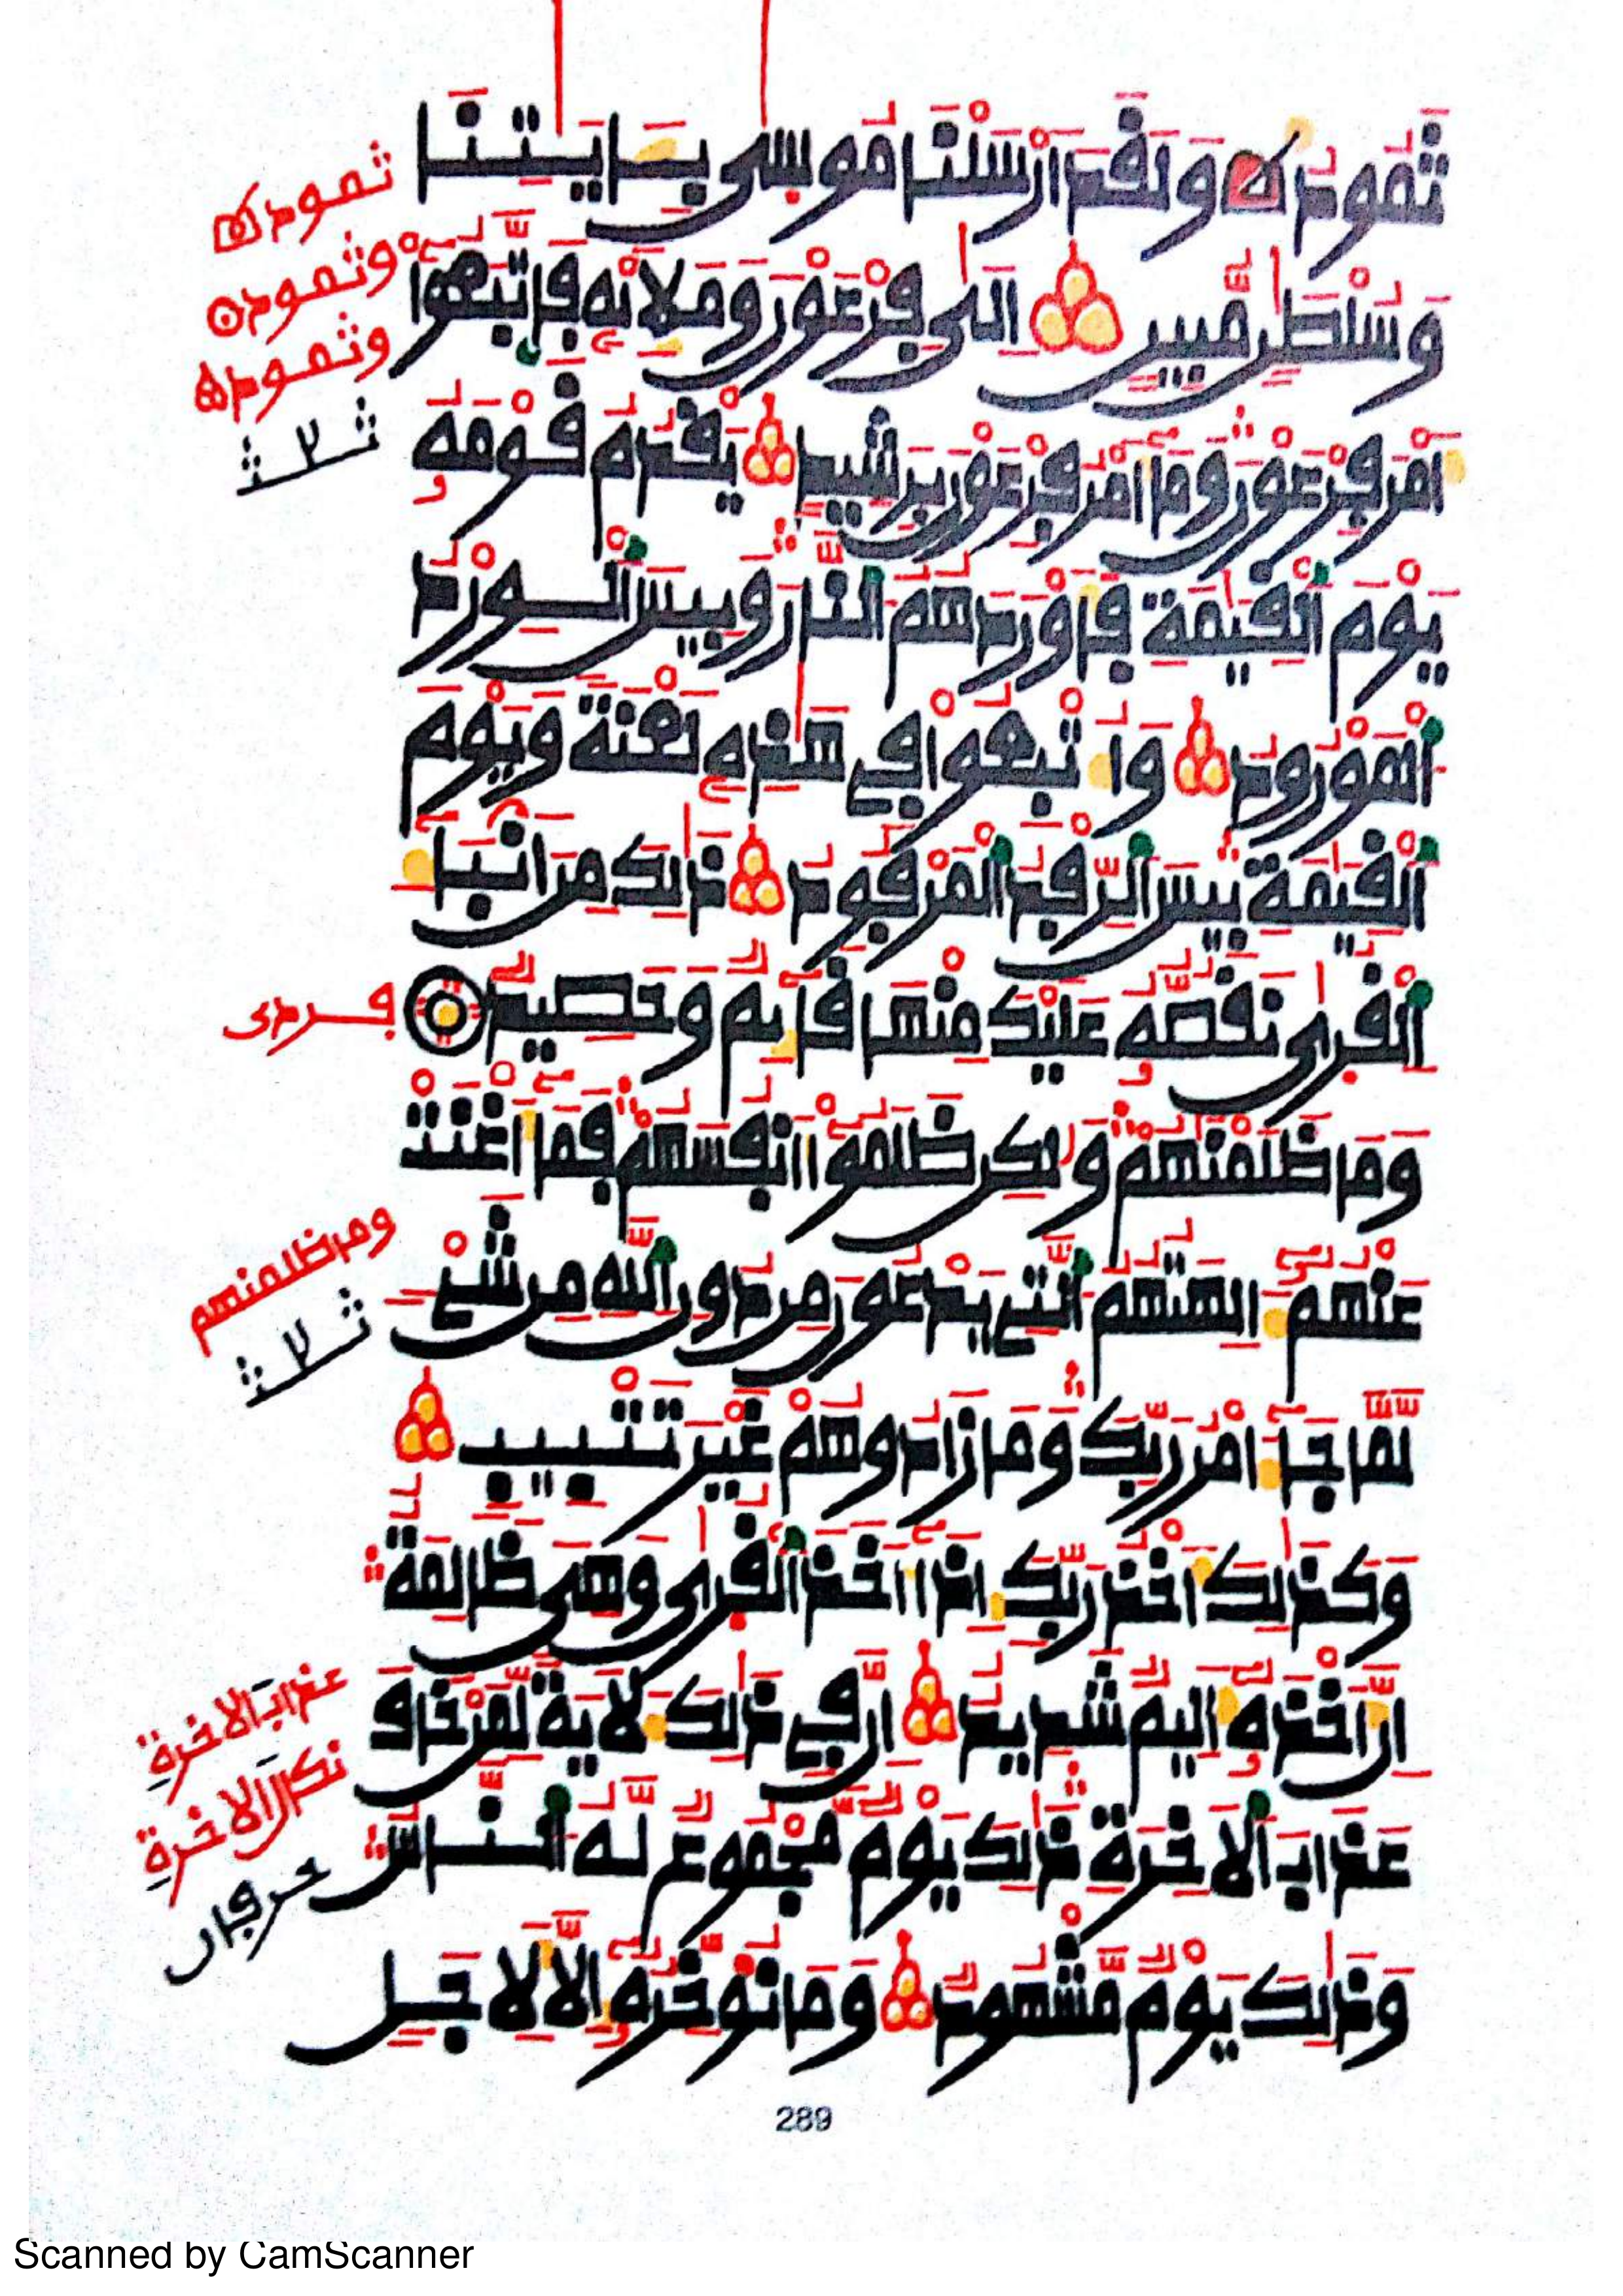 ثَمُودُ وَلَقَدَ اَرْسَلْنَا مُوسٜى بِـَٔايَٰتِنَا
وَسُلْطَٰنٍ مُّبِينٍ اِلَىٰ فِرْعَوْنَ وَمَلَإِيْهِ فَاتَّبَعُوٓاْ
أَمْرَ فِرْعَوْنَ وَمَآ أَمْرُ فِرْعَوْنَ بِرَشِيدٍ يَقْدُمُ قَوْمَهُۥ
يَوْمَ اَ۬لْقِيَٰمَةِ فَأَوْرَدَهُمُ اُ۬لنَّارَ وَبِيسَ اَ۬لْوِرْدُ
اُ۬لْمَوْرُودُ وَأُتْبِعُواْ فِے هَٰذِهِۦ لَعْنَةً وَيَوْمَ
اَ۬لْقِيَٰمَةِ بِيسَ اَ۬لرِّفْدُ اُ۬لْمَرْفُودُ ذَٰلِكَ مِنَ اَنۢبَآءِ
اِ۬لْقُر۪ىٰ نَقُصُّهُۥ عَلَيْكَ مِنْهَا قَآئِمٌ وَحَصِيدٌ
وَمَا ظَلَمْنَٰهُمْ وَلَٰكِن ظَلَمُوٓاْ أَنفُسَهُمْ فَمَآ أَغْنَتْ
عَنْهُمُۥٓ ءَالِهَتُهُمُ اُ۬لتِے يَدْعُونَ مِن دُونِ اِ۬للَّهِ مِن شَےْءٍ
لَّمَّا جَآءَ امْرُ رَبِّكَ وَمَا زَادُوهُمْ غَيْرَ تَتْبِيبٍ
وَكَذَٰلِكَ أَخْذُ رَبِّكَ إِذَآ أَخَذَ اَ۬لْقُر۪ىٰ وَهِيَ ظَٰلِمَةٌ
اِنَّ أَخْذَهُۥٓ أَلِيمٌ شَدِيدٌ اِنَّ فِے ذَٰلِكَ لَأٓيَةً لِّمَنْ خَافَ
عَذَابَ اَ۬لَاخِرَةِ ذَٰلِكَ يَوْمٌ مَّجْمُوعٌ لَّهُ اُ۬لنَّاسُ
وَذَٰلِكَ يَوْمٌ مَّشْهُودٌ وَمَا نُوَ۬خِّرُهُۥٓ إِلَّا لِأَجَلٍ
ثمود
وثمود
وثمود
ومن ظلمنهم
عذاب الاخرة
نكال الاخرة
حرفان
289
Scanned by CamScanner